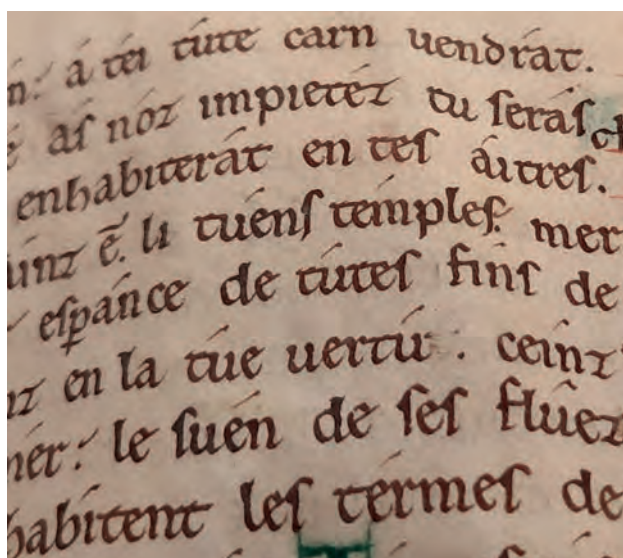 á téi túte carn uendrát.
áſ nóz impietéz tu ſeráſ
enhabiterát en teſ áitreſ.
ē. li tuénſ témpleſ: mer
eſꝑánce de túteſ finſ de
en la túe uertú : ceinz
mér: le ſuén de ſeſ flûez
habitent leſ térmeſ de